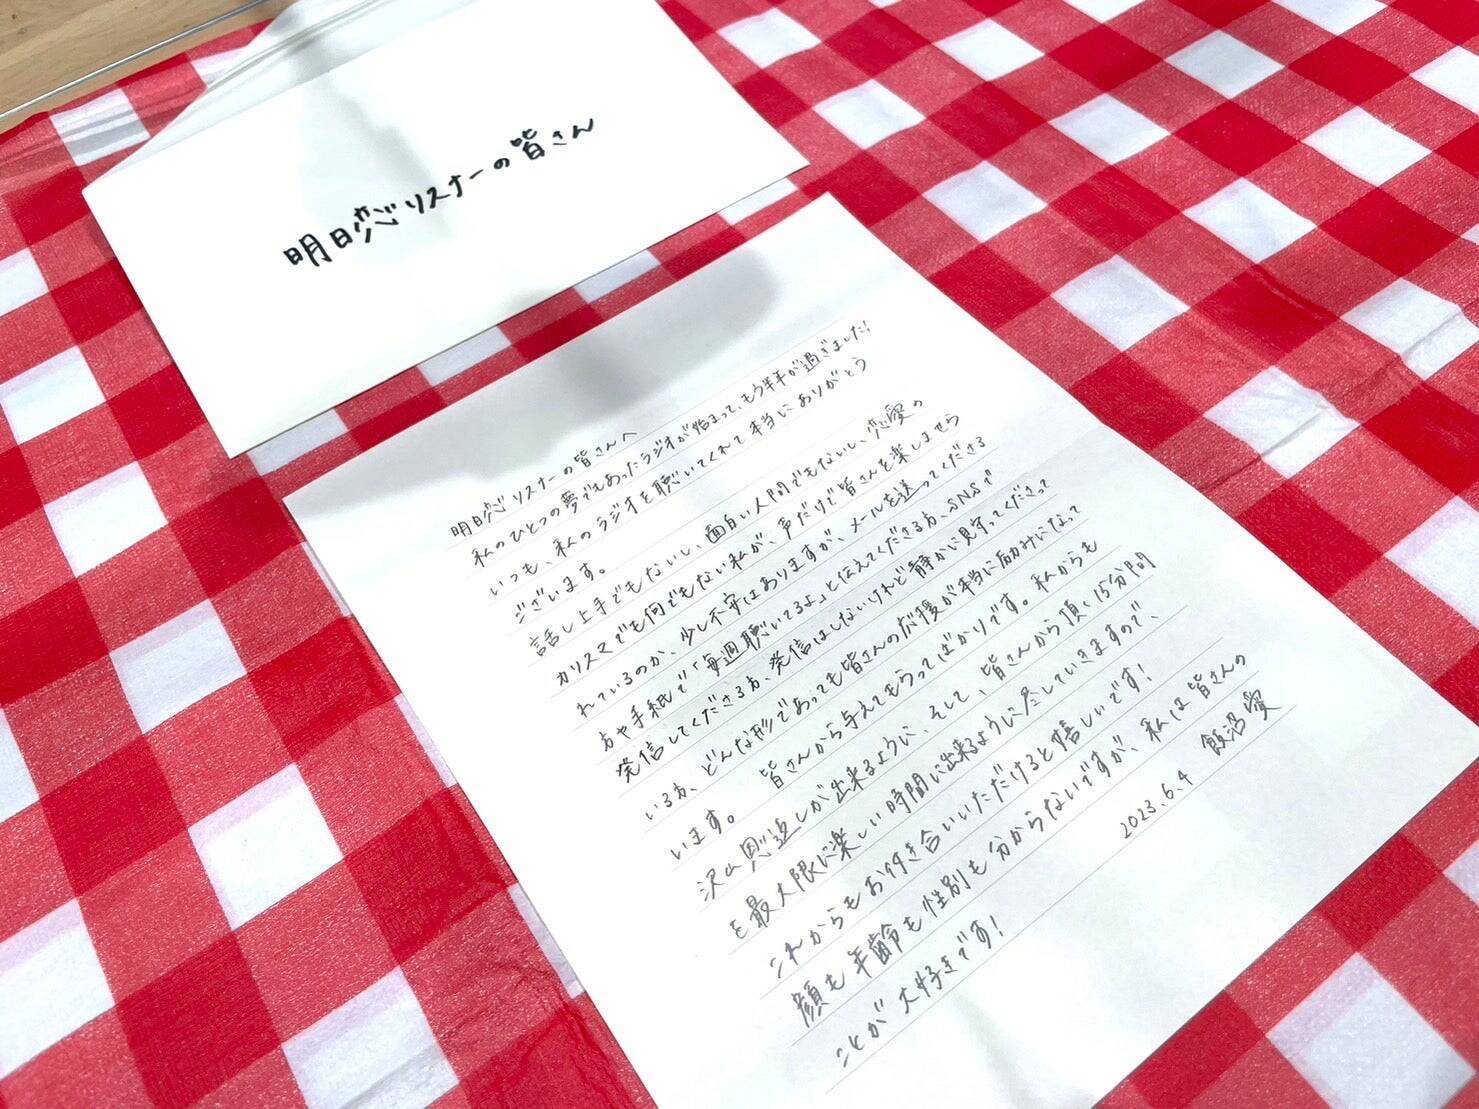 明日恋リスナーの皆さん
明日恋リスナーの皆さんへ
私のひとつの夢でもあったラジオが始まって、もう半年が過ぎました!
いつも、私のラジオを聴いてくれて本当にありがとう
ございます。
話し上手でもないし、面白い人間でもないし、恋愛の
カリスマでも何でもない私が、声だけで皆さんを楽しませら
れているのか、少し不安はありますが、メールを送ってくださる
方や手紙で「毎週聴いてるよ」と伝えてくださる方、SNSで
発信してくださる方、発信はしないけれど静かに見守ってくださって
いる方、どんな形であっても皆さんの応援が本当に励みになって
います。 皆さんから与えてもらってばかりです。私からも
沢山恩返しが出来るように、そして、皆さんから頂く15分間
を最大限に楽しい時間に出来るように尽していきますので、
これからもお付き合いいただけると嬉しいです!
顔も年齢も性別も分からないですが、私は皆さんの
ことが大好きです!
2023.6.4 飯沼愛